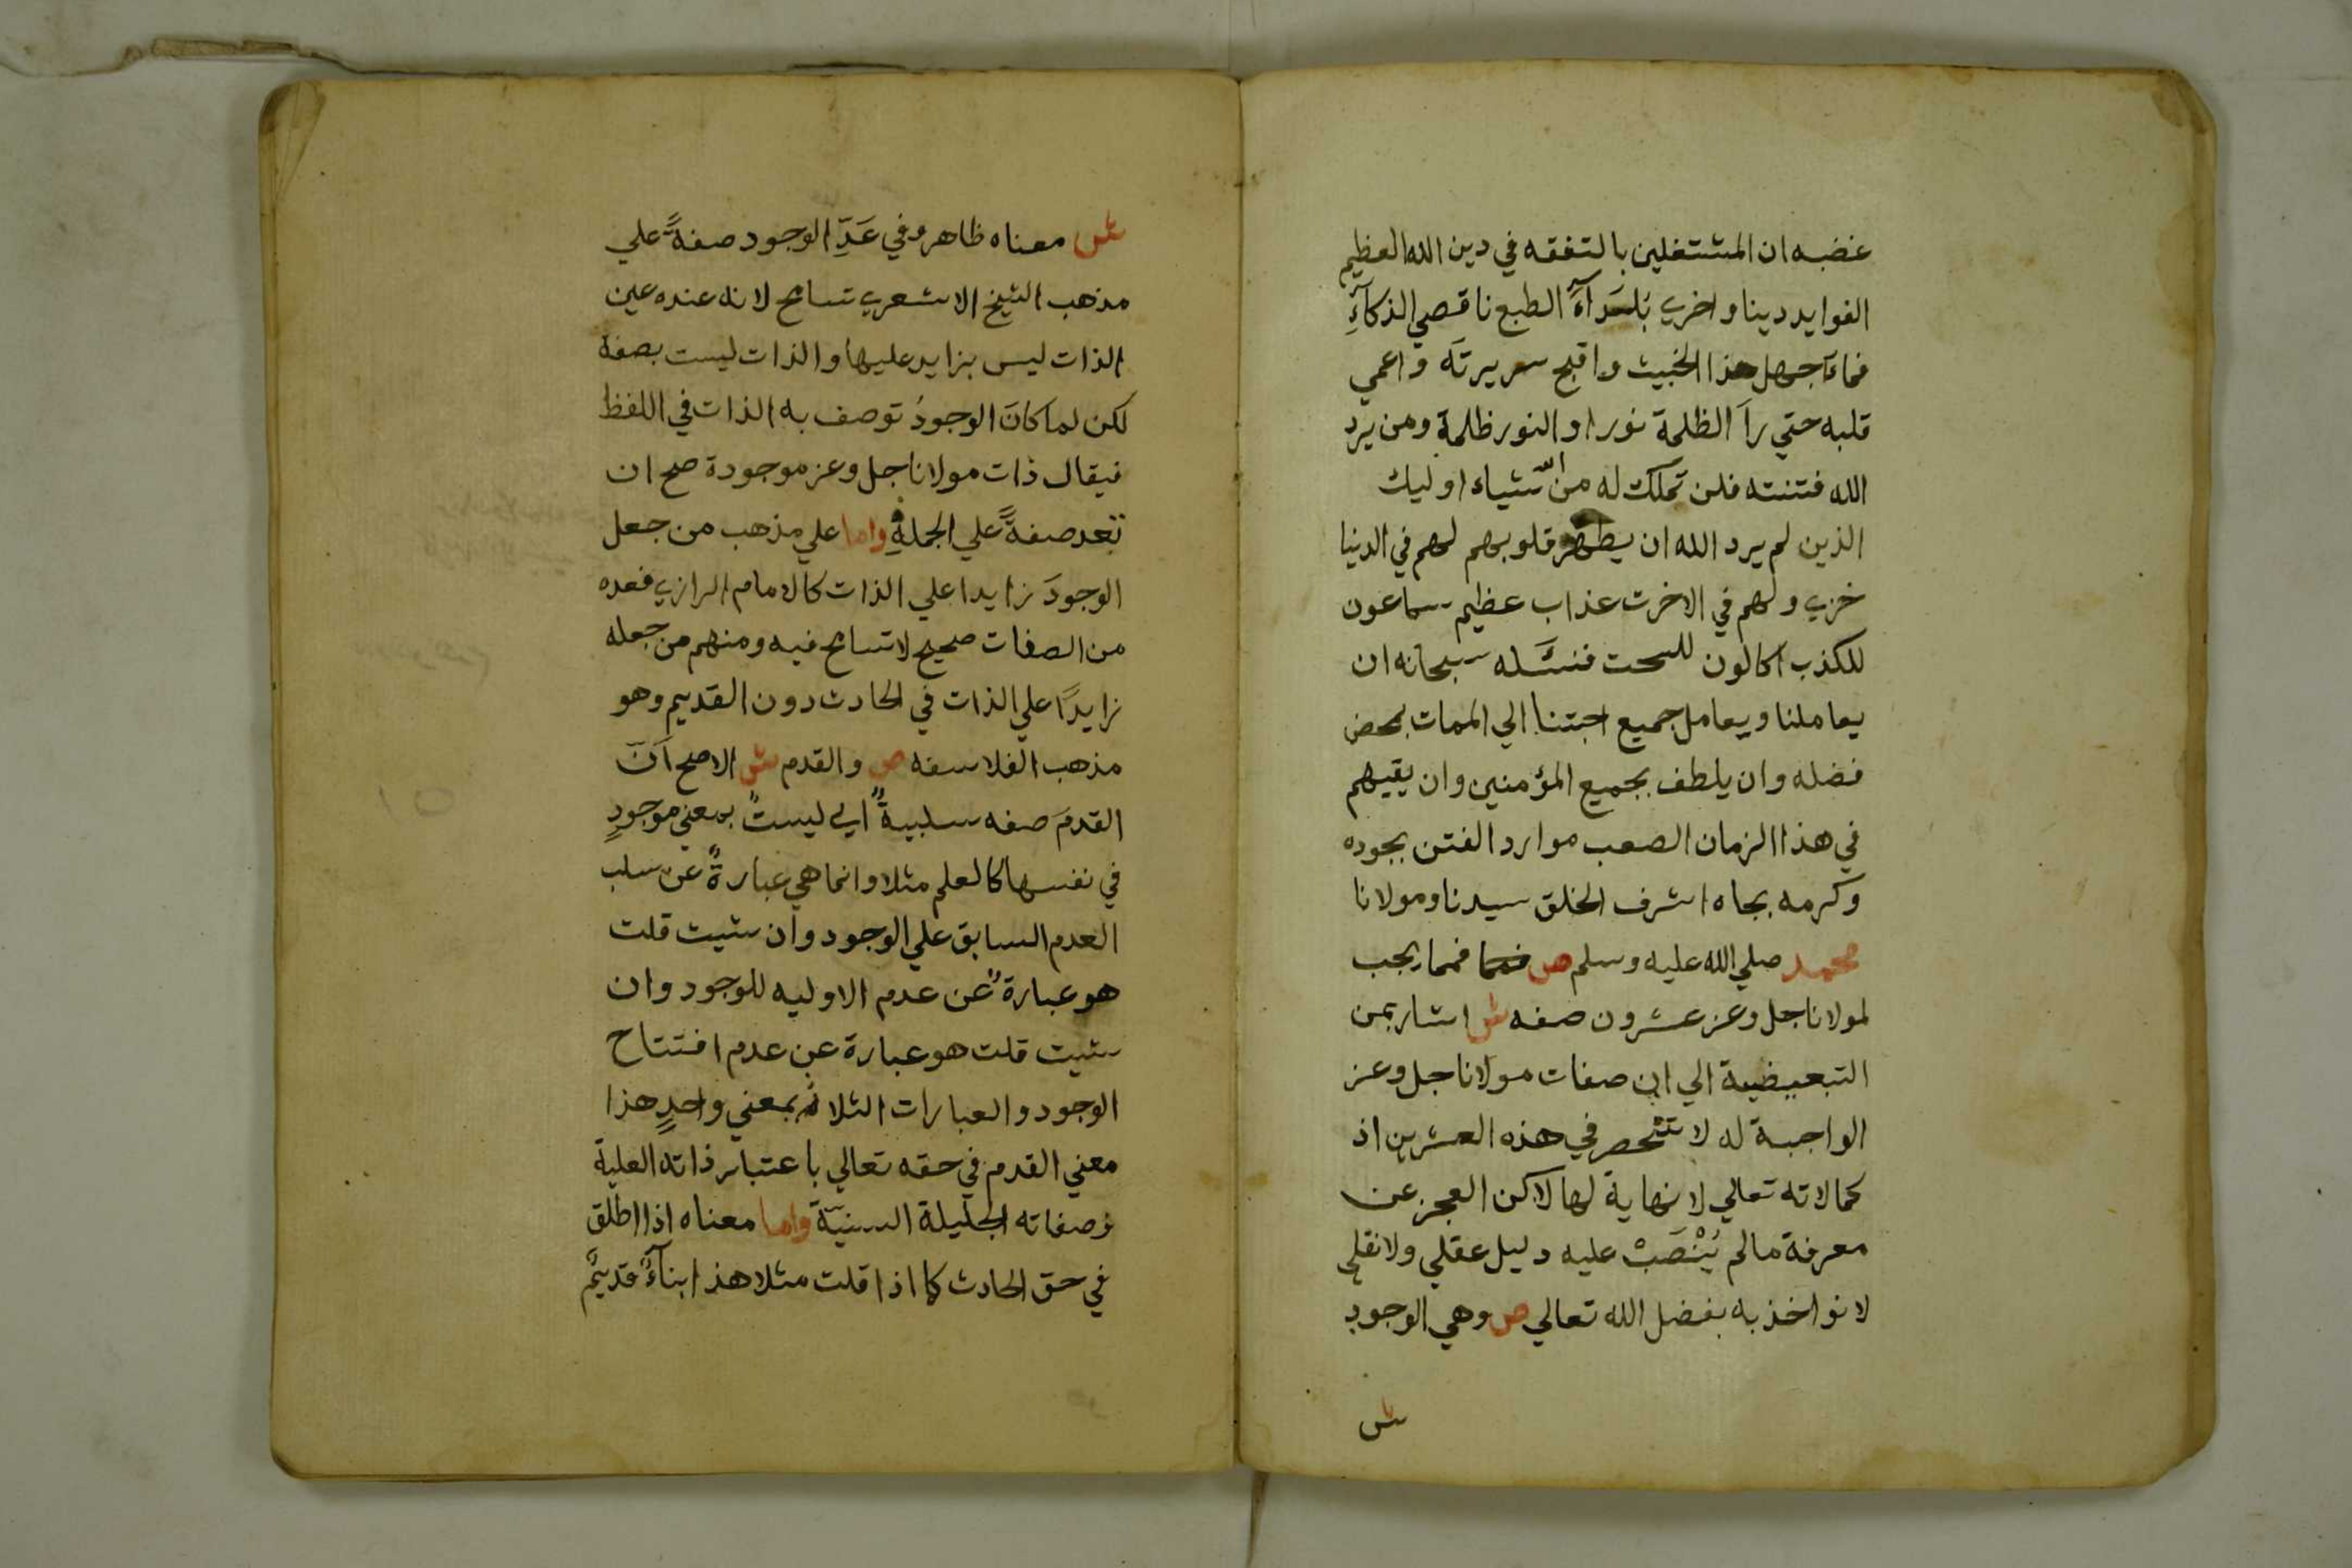 غضبه ان المشتغلين بالتفقه في دين الله العظيم
الفوايد دينا واخري بُلَدَآءُ الطبع ناقصي الذكآءِ
فما اجهل هذا الخبيث واقبح سريرته واعمي
قلبه حتي راَ الظلمة نورا والنور ظلمة ومن يرد
الله فتنته فلن تملك له من الله شياء اوليك
الذين لم يرد الله ان يطهر قلوبهم لهم في الدنيا
خزي ولهم في الاخرت عذاب عظيم سماعون
للكذب اكالون للسحت فنسَئله سبحانه ان
يعاملنا ويعامل جميع احبتنا الي الممات بمحض
فضله وان يلطف بجميع المؤمنين وان يقيهم
في هذا الزمان الصعب موارد الفتن بجوده
وكرمه بجاه اشرف الخلق سيدنا ومولانا
محمد صلي الله عليه وسلم ص فمما يجب
لمولانا جل وعز عشرون صفه ش اشار بمن
التبعيضية الي ان صفات مولانا جل وعز
الواجبة له لا تنحصر في هذه العشرين اذ
كمالاته تعالي لا نهاية لها لاكن العجز عن
معرفة مالم يُنْصَبْ عليه دليل عقلي ولا نقلي
لا نواخذ به بفضل الله تعالي ص وهي الوجود
ش
ش معناه ظاهر وفي عَدِّ الوجود صفةً علي
مذهب الشيخ الاشعري تسامح لانه عنده عين
الذات ليس بزايد عليها والذات ليست بصفة
لكن لما كانَ الوجودُ توصف به الذات في اللفظ
فيقال ذات مولانا جل وعز موجودة صح ان
تعد صفةً علي الجملةِ واما علي مذهب من جعل
الوجودَ زايدا علي الذات كالامام الرازي فعده
من الصفات صحيح لا تسامح فيه ومنهم من جعله
زايدًا علي الذات في الحادث دون القديم وهو
مذهب الفلاسفه ص والقدم ش الاصح اَنّ
القدمَ صفه سلبيةٌ اي ليستْ بمعني موجودٍ
في نفسها كالعلم مثلا وانما هي عبارةٌ عن سلب
العدم السابق علي الوجود وان شيت قلت
هو عبارةٌ عن عدم الاوليه للوجود وان
شيت قلت هو عبارة عن عدم افتتاح
الوجود والعبارات الثلاثه بمعني واحدٍ هذا
معني القدم في حقه تعالي باعتبار ذاته العلية
وصفاته الجليلة السنيّة واما معناه اذا اطلق
في حق الحادث كما اذا قلت مثلا هذا بنآءٌ قديمٌ